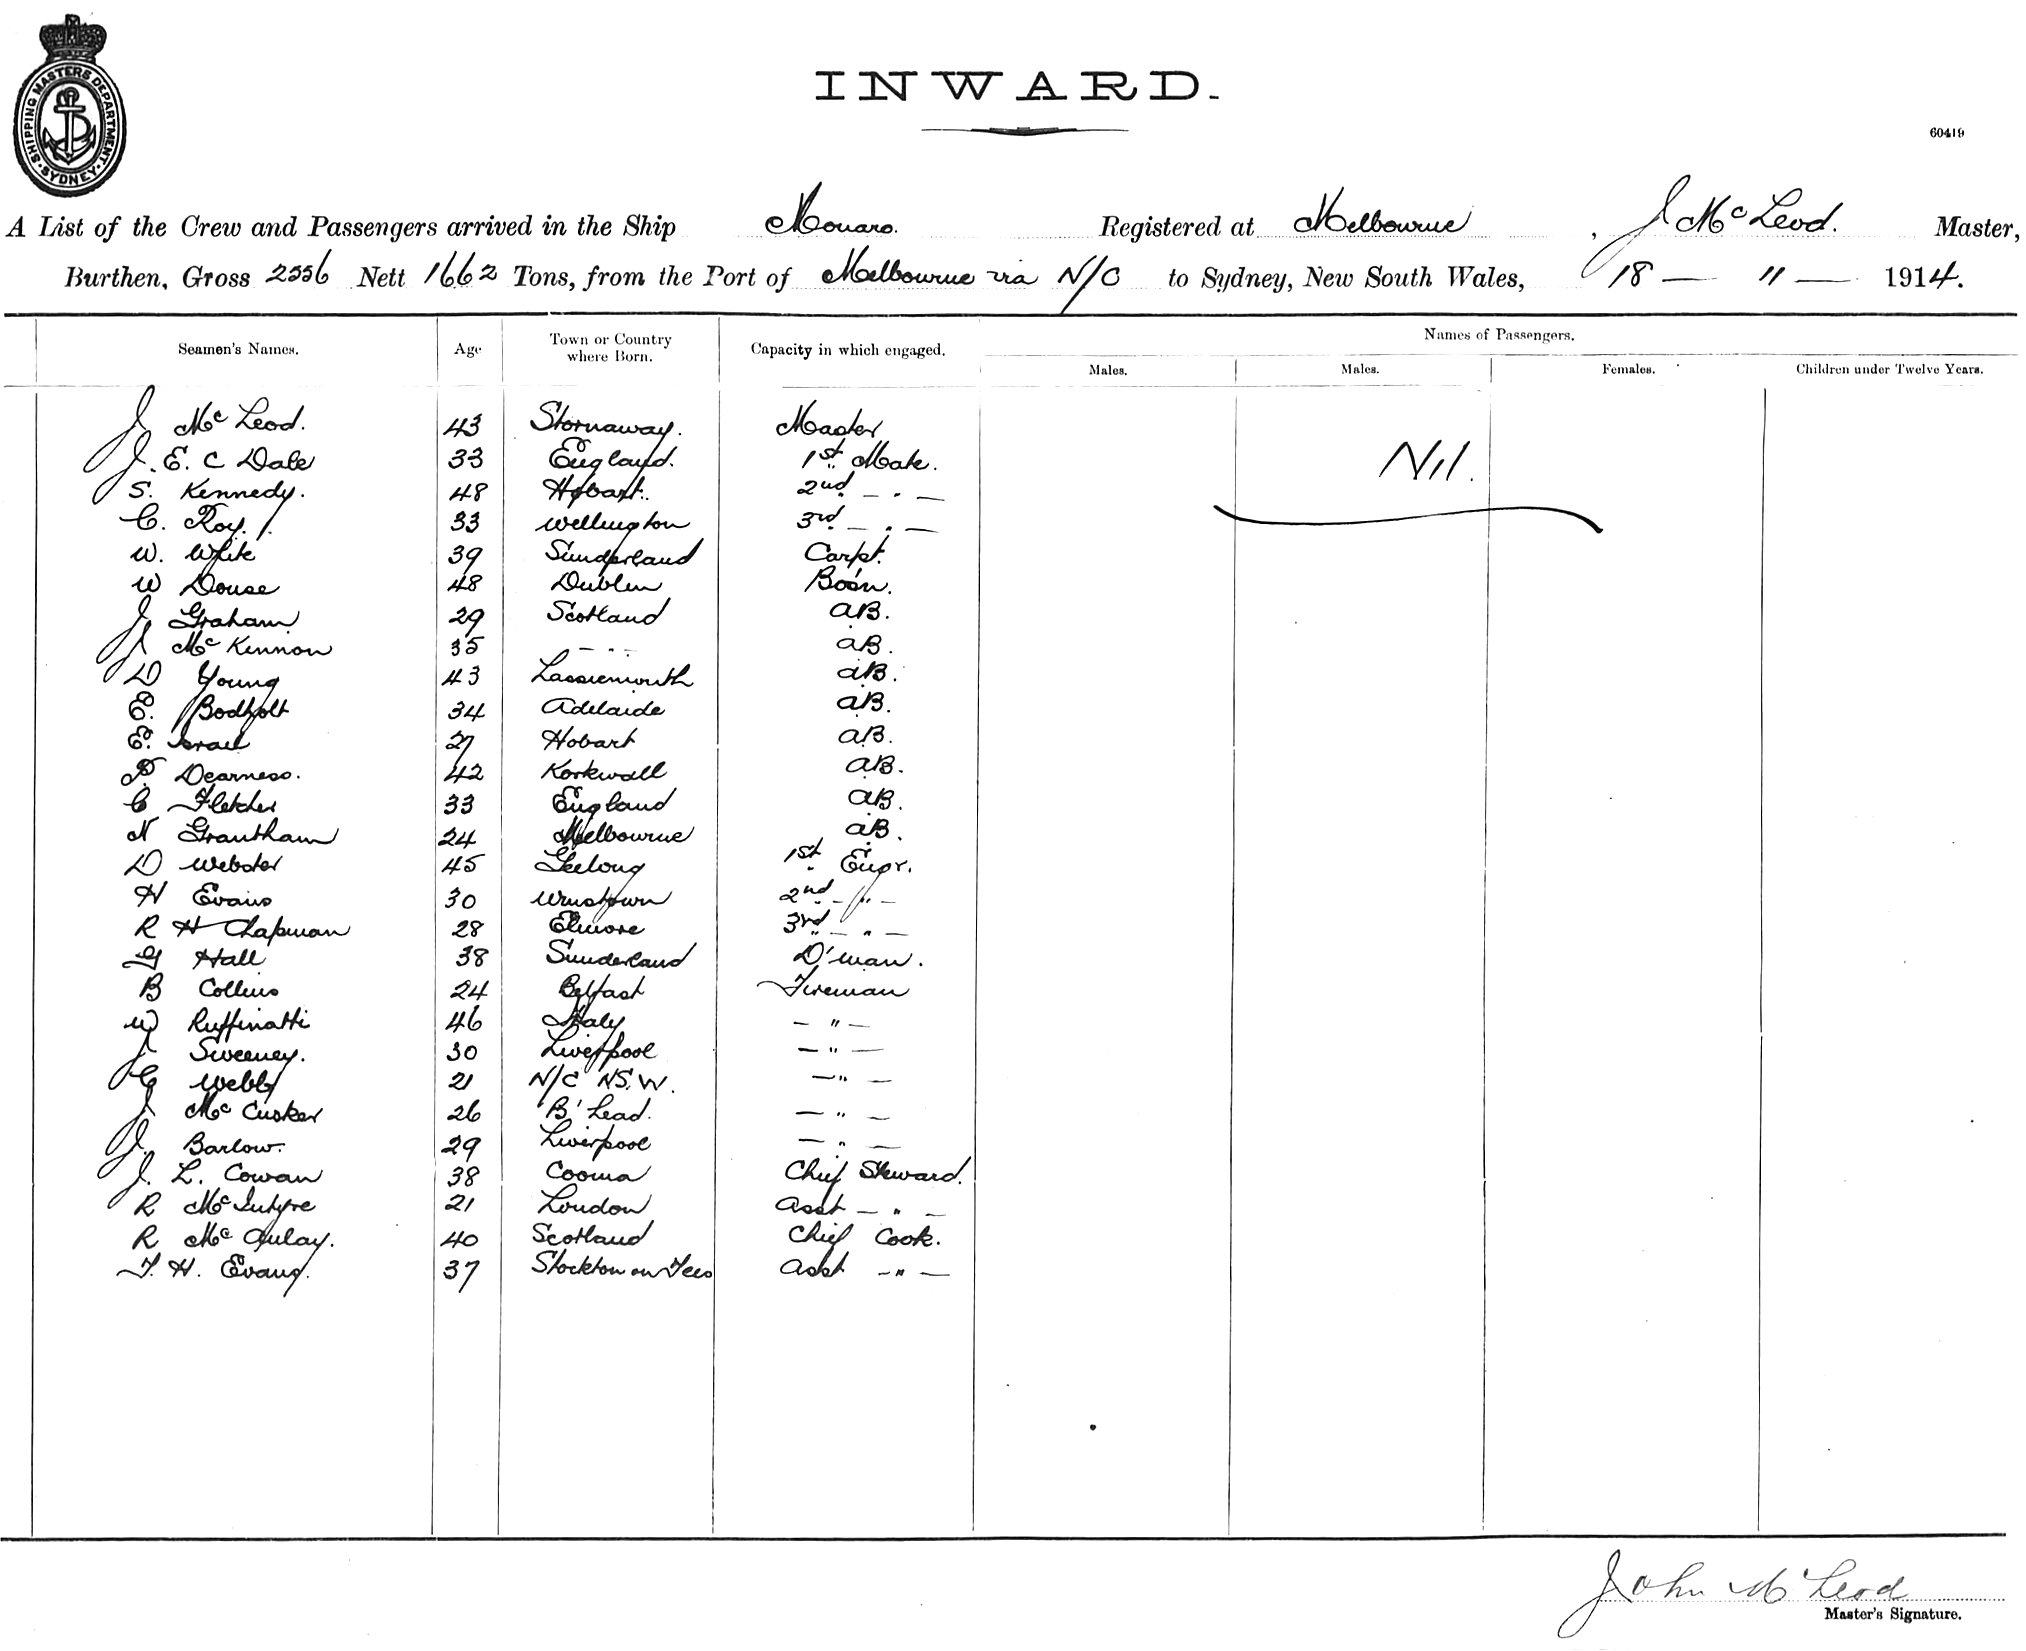 SHIPPING MASTERS DEPARTMENT. SYDNEY.
INWARD.
60419
A List of the Crew and Passengers arrived in the Ship Monaro. Registered at Melbourne, J McLeod. Master,
Burthen, Gross 2556 Nett 1662 Tons, from the Port of Melbourne via N/C to Sydney, New South Wales, 18 — 11 — 1914.
Seamen's Names. Age Town or Country where Born. Capacity in which engaged. Names of Passengers.
Males. Males. Females. Children under Twelve Years.
J McLeod. 43 Stornaway. Master
J. E. C Dale 33 England. 1st Mate. Nil.
S. Kennedy. 48 Hobart. 2nd — " —
C. Roy. 33 Wellington 3rd — " —
W. White 39 Sunderland Carpt.
W Douse 48 Dublin Bo'sn.
J Graham 29 Scotland AB.
J McKinnon 35 - " - AB.
D Young 43 Lossiemouth AB.
E. Bodholt 34 Adelaide AB.
E. Israel 27 Hobart AB.
P Dearness. 42 Korkwall AB.
C Fletcher 33 England AB.
N Grantham 24 Melbourne AB.
D Webster 45 Geelong 1st Engr.
H Evans 30 2nd - " -
R H Chapman 28 Elmore 3rd - " -
G Hall 38 Sunderland D'man.
B Collins 24 Belfast Fireman
W Ruffinatti 46 Italy — " —
J Sweeney. 30 Liverpool — " —
C Webb 21 N/C NS.W. — " —
J McCusker 26 B'Lead. — " —
J. Barlow. 29 Liverpool — " —
J. L. Cowan 38 Cooma Chief Steward.
R McIntyre 21 London Asst — " —
R McAulay. 40 Scotland Chief Cook.
T. H. Evans. 37 Stockton on Tees Asst — " —
John McLeod
Master's Signature.